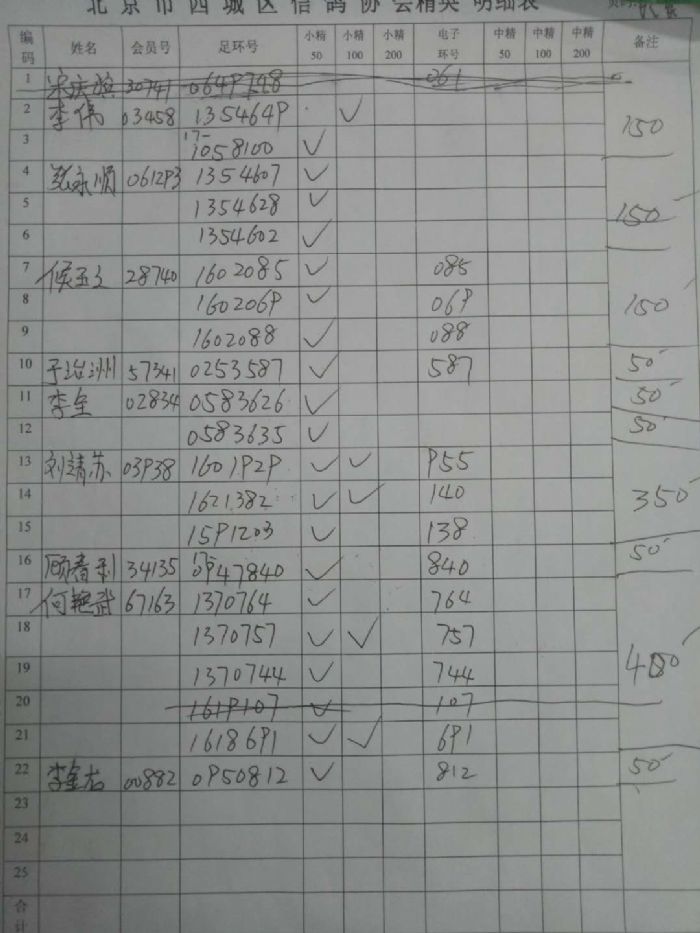 北京市西城区信鸽协会精英 明细表
编码 姓名 会员号 足环号 小精50 小精100 小精200 电子环号 中精50 中精100 中精200 备注
1 30741 061
2 李伟 03458 1354649 ✓ 150
3 17- 1058100 ✓
4 张永顺 061293 1354607 ✓
5 1354628 ✓ 150
6 1354602 ✓
7 28740 1602085 ✓ 085
8 1602069 ✓ 069 150
9 1602088 ✓ 088
10 57341 0253587 ✓ 587 50
11 李全 02834 0583626 ✓ 50
12 0583635 ✓ 50
13 刘靖苏 03938 1601929 ✓ ✓ 955
14 1621382 ✓ ✓ 140 350
15 1591203 ✓ 138
16 顾春利 34135 0947840 ✓ 840 50
17 何艳武 67163 1370764 ✓ 764
18 1370757 ✓ ✓ 757
19 1370744 ✓ 744 400
20 1619107 ✓ 107
21 1618691 ✓ ✓ 691
22 李金右 00882 0950812 ✓ 812 50
23
24
25
合计